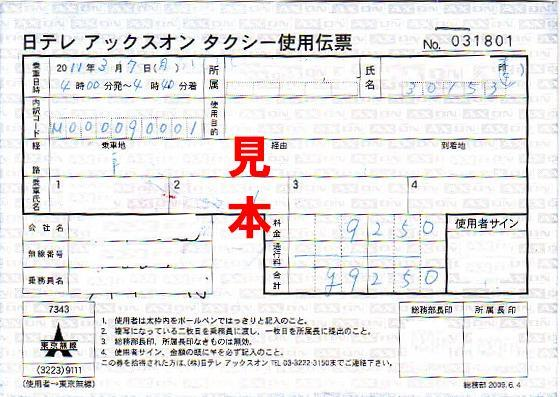 日テレ アックスオン タクシー使用伝票
No. 031801
乗車日時
2011年3月7日(月)
4時00分発～4時40分着
所属
氏名
30753
内訳コード
M000090001
使用目的
経路
乗車地
経由
到着地
見本
乗車氏名
1
2
3
4
会社名
無線番号
乗務員名
料金
9250
通行料
合計
¥9250
使用者サイン
7343
東京無線
(3223)9111
(使用者→東京無線)
1. 使用者は太枠内をボールペンではっきりと記入のこと。
2. 複写になっている二枚目を乗務員に渡し、一枚目を所属長に提出のこと。
3. 総務部長印、所属長印なきものは無効。
4. 使用者サイン、金額の頭に¥を必ず記入のこと。
この券を拾得された方は、(株)日テレ アックスオン TEL 03-3222-3150までご連絡下さい。
総務部長印
所属長印
総務部 2009.6.4